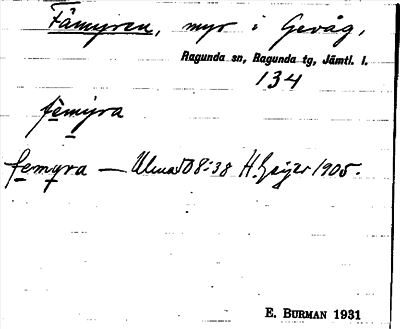 Fämyren, myr i Gevåg,
Ragunda sn, Ragunda tg, Jämtl. l.
134
femyra
femyra — 508:38 H. Geijer 1905.
E. BURMAN 1931